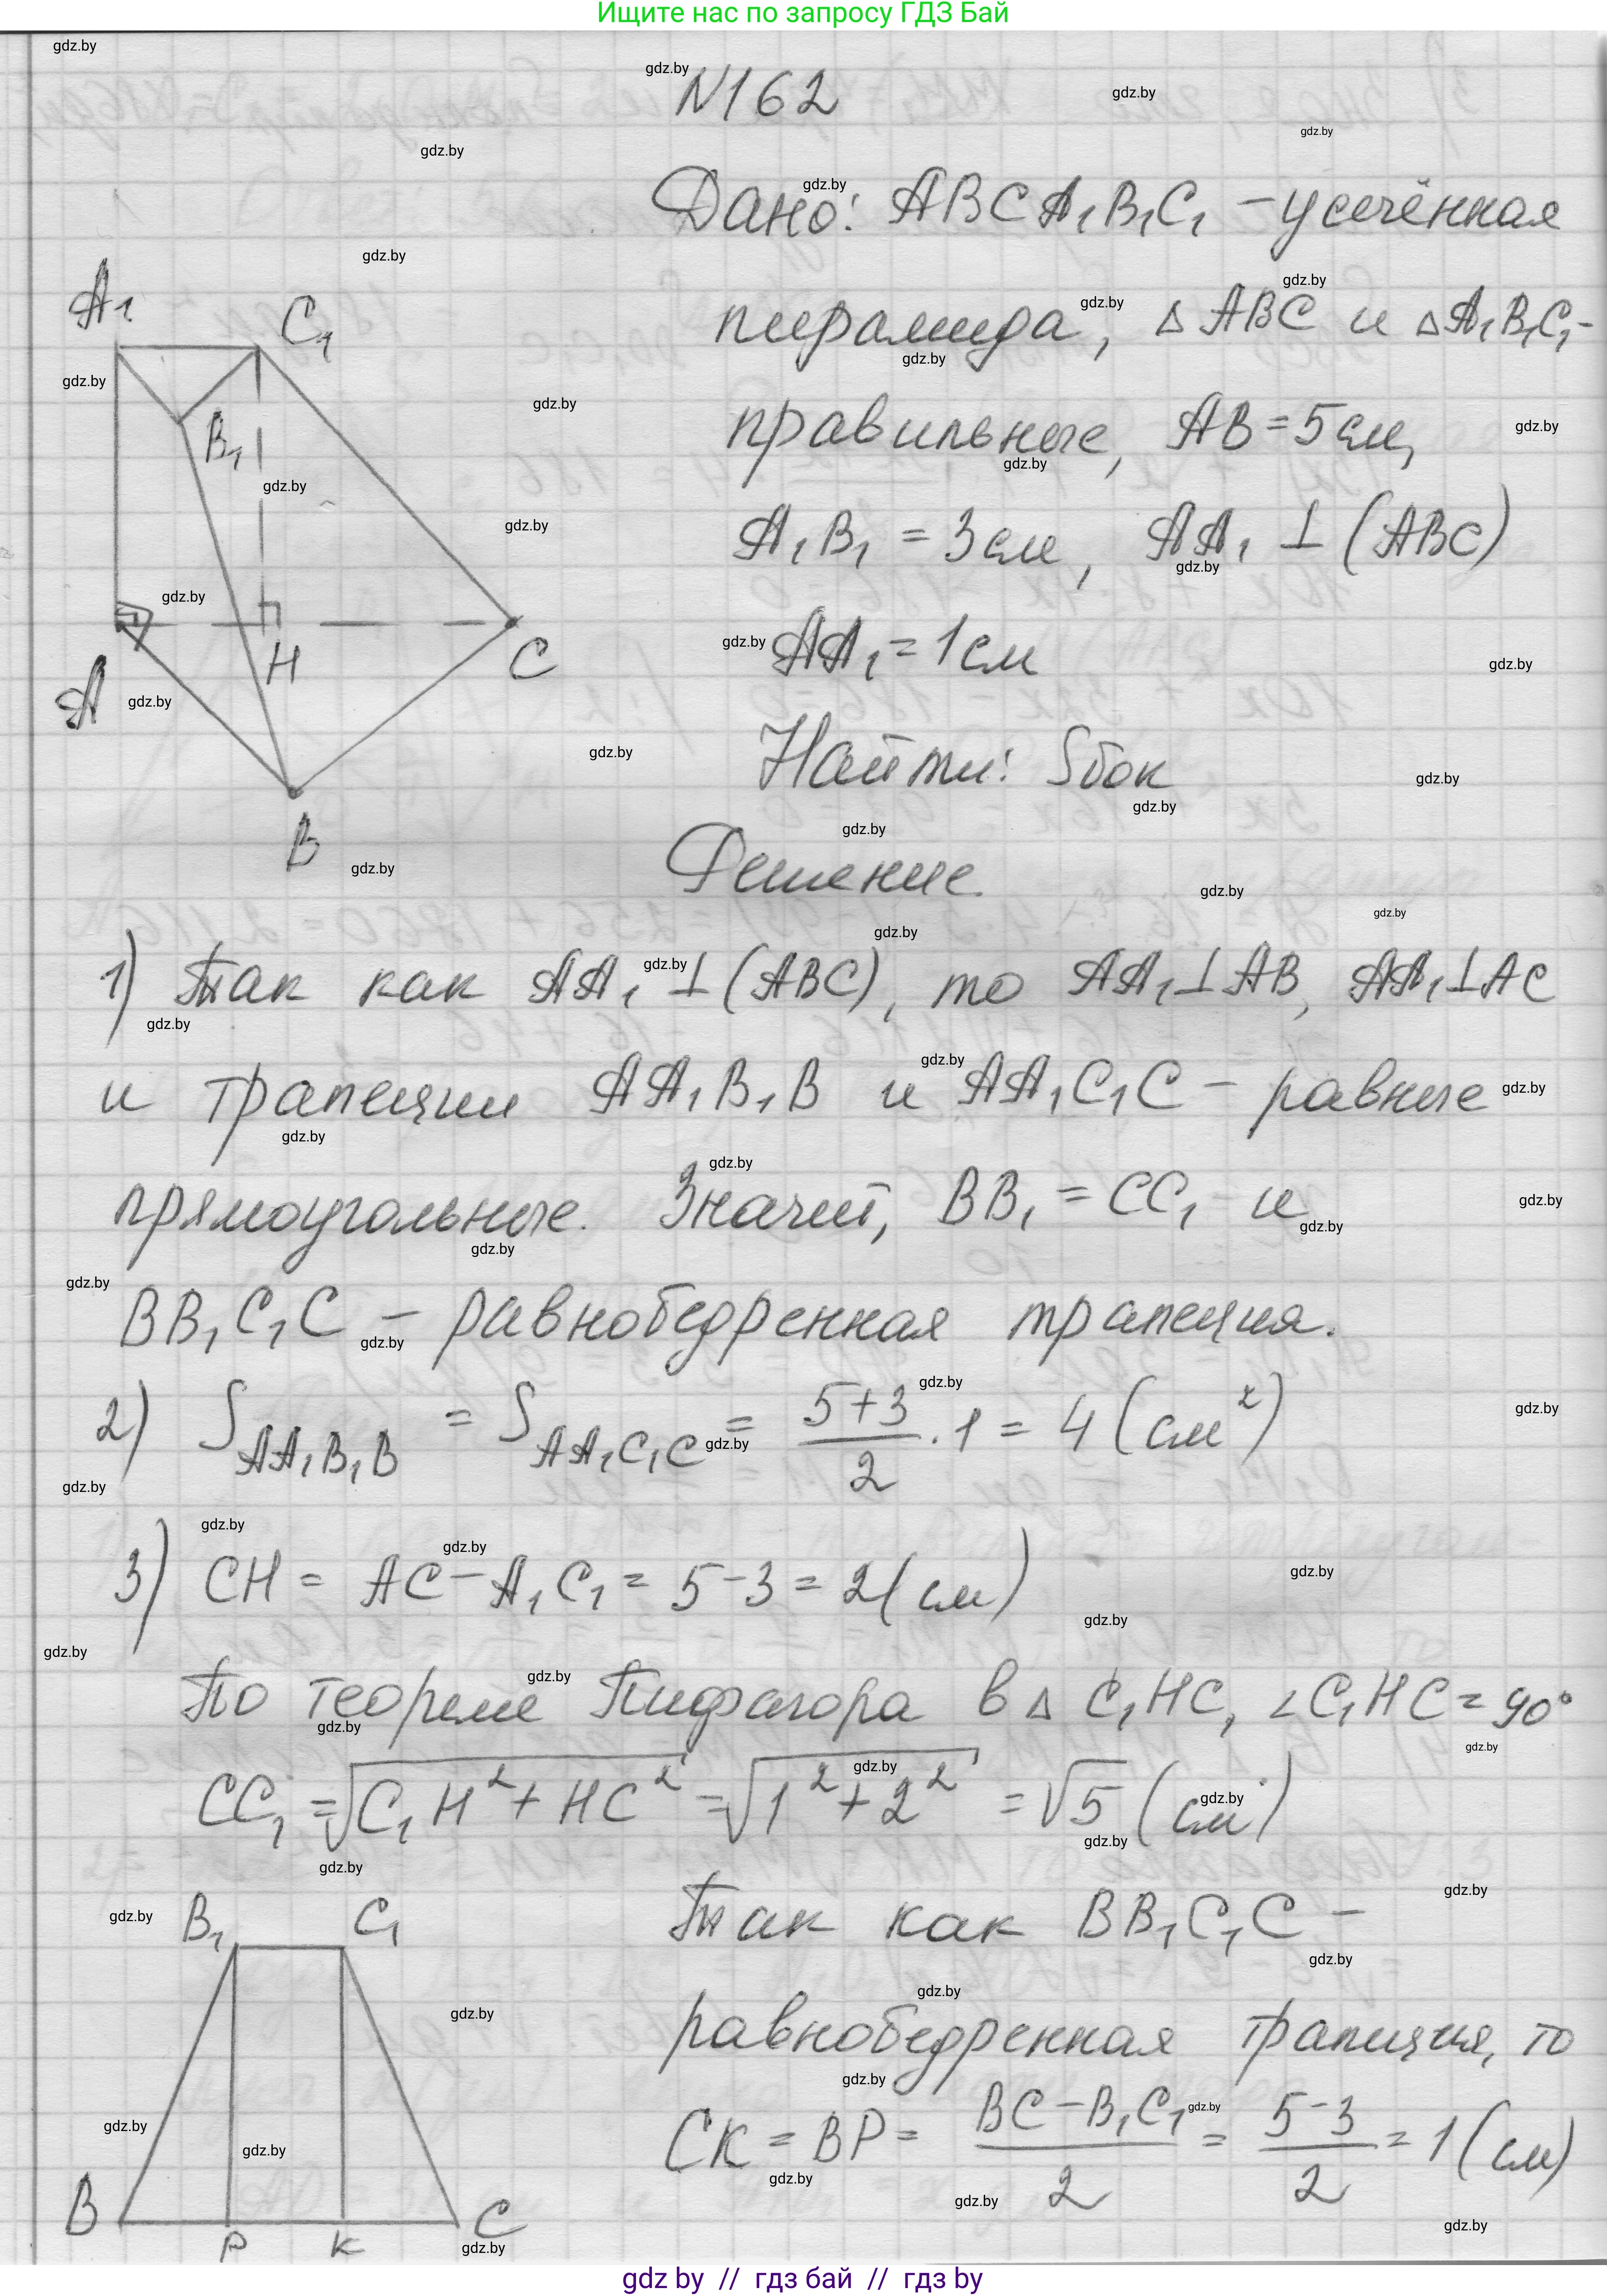 Ищите нас по запросу ГДЗ Бай
N162
Дано: ABCA₁B₁C₁ – усечённая
пирамида, △ABC и △A₁B₁C₁ -
правильные, AB = 5 см,
A₁B₁ = 3 см, AA₁ ⊥ (ABC)
AA₁ = 1 см
Найти: Sбок
A₁
C₁
B₁
H
C
A
B
Решение.
1) Так как AA₁ ⊥ (ABC), то AA₁ ⊥ AB, AA₁ ⊥ AC
и трапеции AA₁B₁B и AA₁C₁C – равные
прямоугольные. Значит, BB₁ = CC₁ и
BB₁C₁C – равнобедренная трапеция.
2) S_{AA₁B₁B} = S_{AA₁C₁C} = (5+3)/2 · 1 = 4 (см²)
3) CH = AC – A₁C₁ = 5 – 3 = 2 (см)
По теореме Пифагора в △ C₁HC, ∠C₁HC = 90°
CC₁ = √(C₁H² + HC²) = √(1² + 2²) = √5 (см)
B₁ C₁
B P K C
Так как BB₁C₁C –
равнобедренная трапеция, то
CK = BP = (BC – B₁C₁)/2 = (5–3)/2 = 1 (см)
gdz.by
gdz by // гдз бай // гдз by